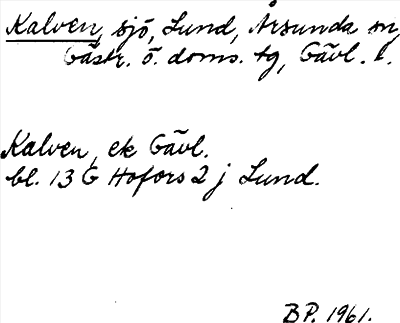 Kalven, sjö, Lund, Årsunda sn,
Gästr. ö. doms. tg, Gävl. l.
Kalven, ek Gävl.
bl. 13 G Hofors 2 j Lund.
BP. 1961.